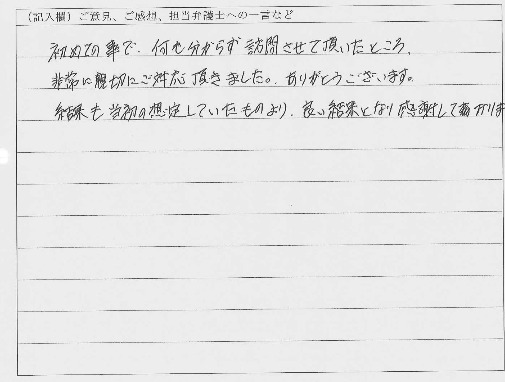 (記入欄)ご意見、ご感想、担当弁護士への一言など
初めての事で、何も分からず訪問させて頂いたところ、
非常に親切にご対応頂きました。ありがとうございます。
結果も当初の想定していたものより、良い結果となり感謝しておりま